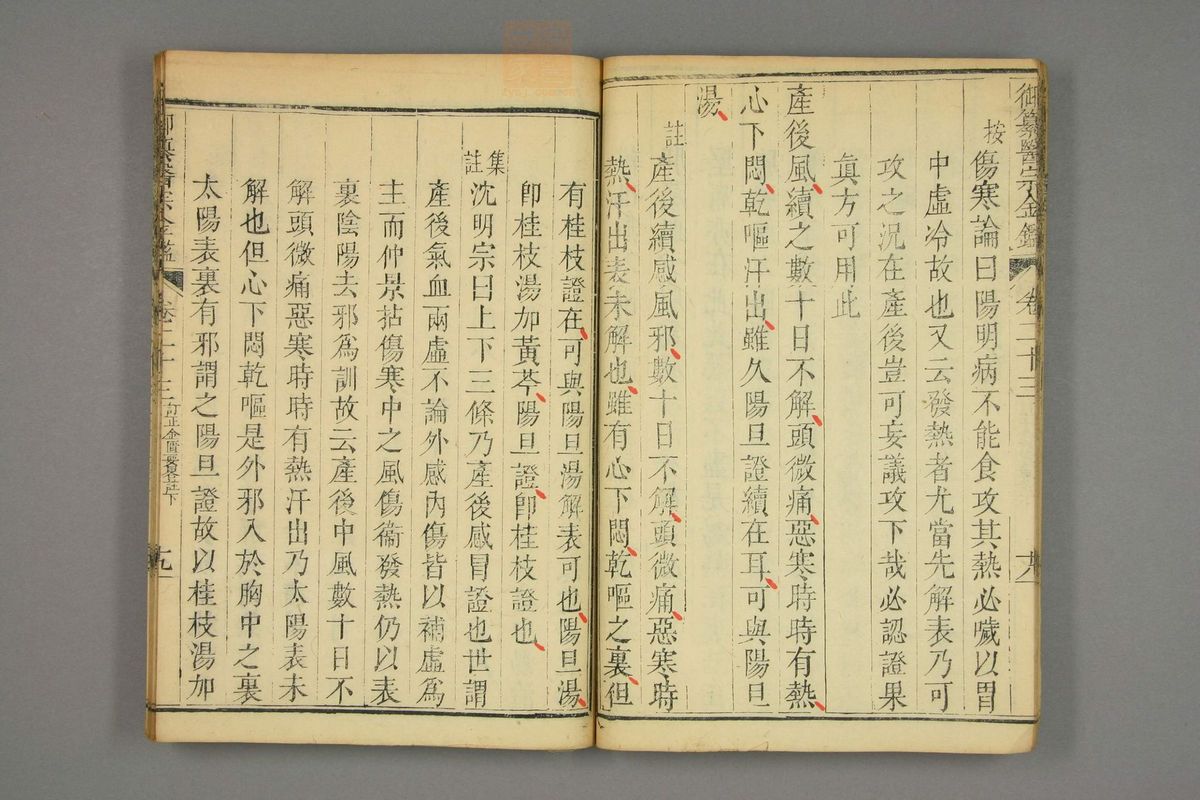 御纂醫宗金鑑 卷二十三
按傷寒論曰陽明病不能食攻其熱必噦以胃
中虛冷故也又云發熱者尤當先解表乃可
攻之況在產後豈可妄議攻下哉必認證果
眞方可用此
產後風續之數十日不解頭微痛惡寒時時有熱
心下悶乾嘔汗出雖久陽旦證續在耳可與陽旦
湯
註產後續感風邪數十日不解頭微痛惡寒時
熱汗出表未解也雖有心下悶乾嘔之裏但
有桂枝證在可與陽旦湯解表可也陽旦湯
卽桂枝湯加黃芩陽旦證卽桂枝證也
集註沈明宗曰上下三條乃產後感冒證也世謂
產後氣血兩虛不論外感內傷皆以補虛爲
主而仲景拈傷寒中之風傷衞發熱仍以表
裏陰陽去邪爲訓故云產後中風數十日不
解頭微痛惡寒時時有熱汗出乃太陽表未
解也但心下悶乾嘔是外邪入於胸中之裏
太陽表裏有邪謂之陽旦證故以桂枝湯加
御纂醫宗金鑑 卷二十三 訂正金匱要畧註下 九一